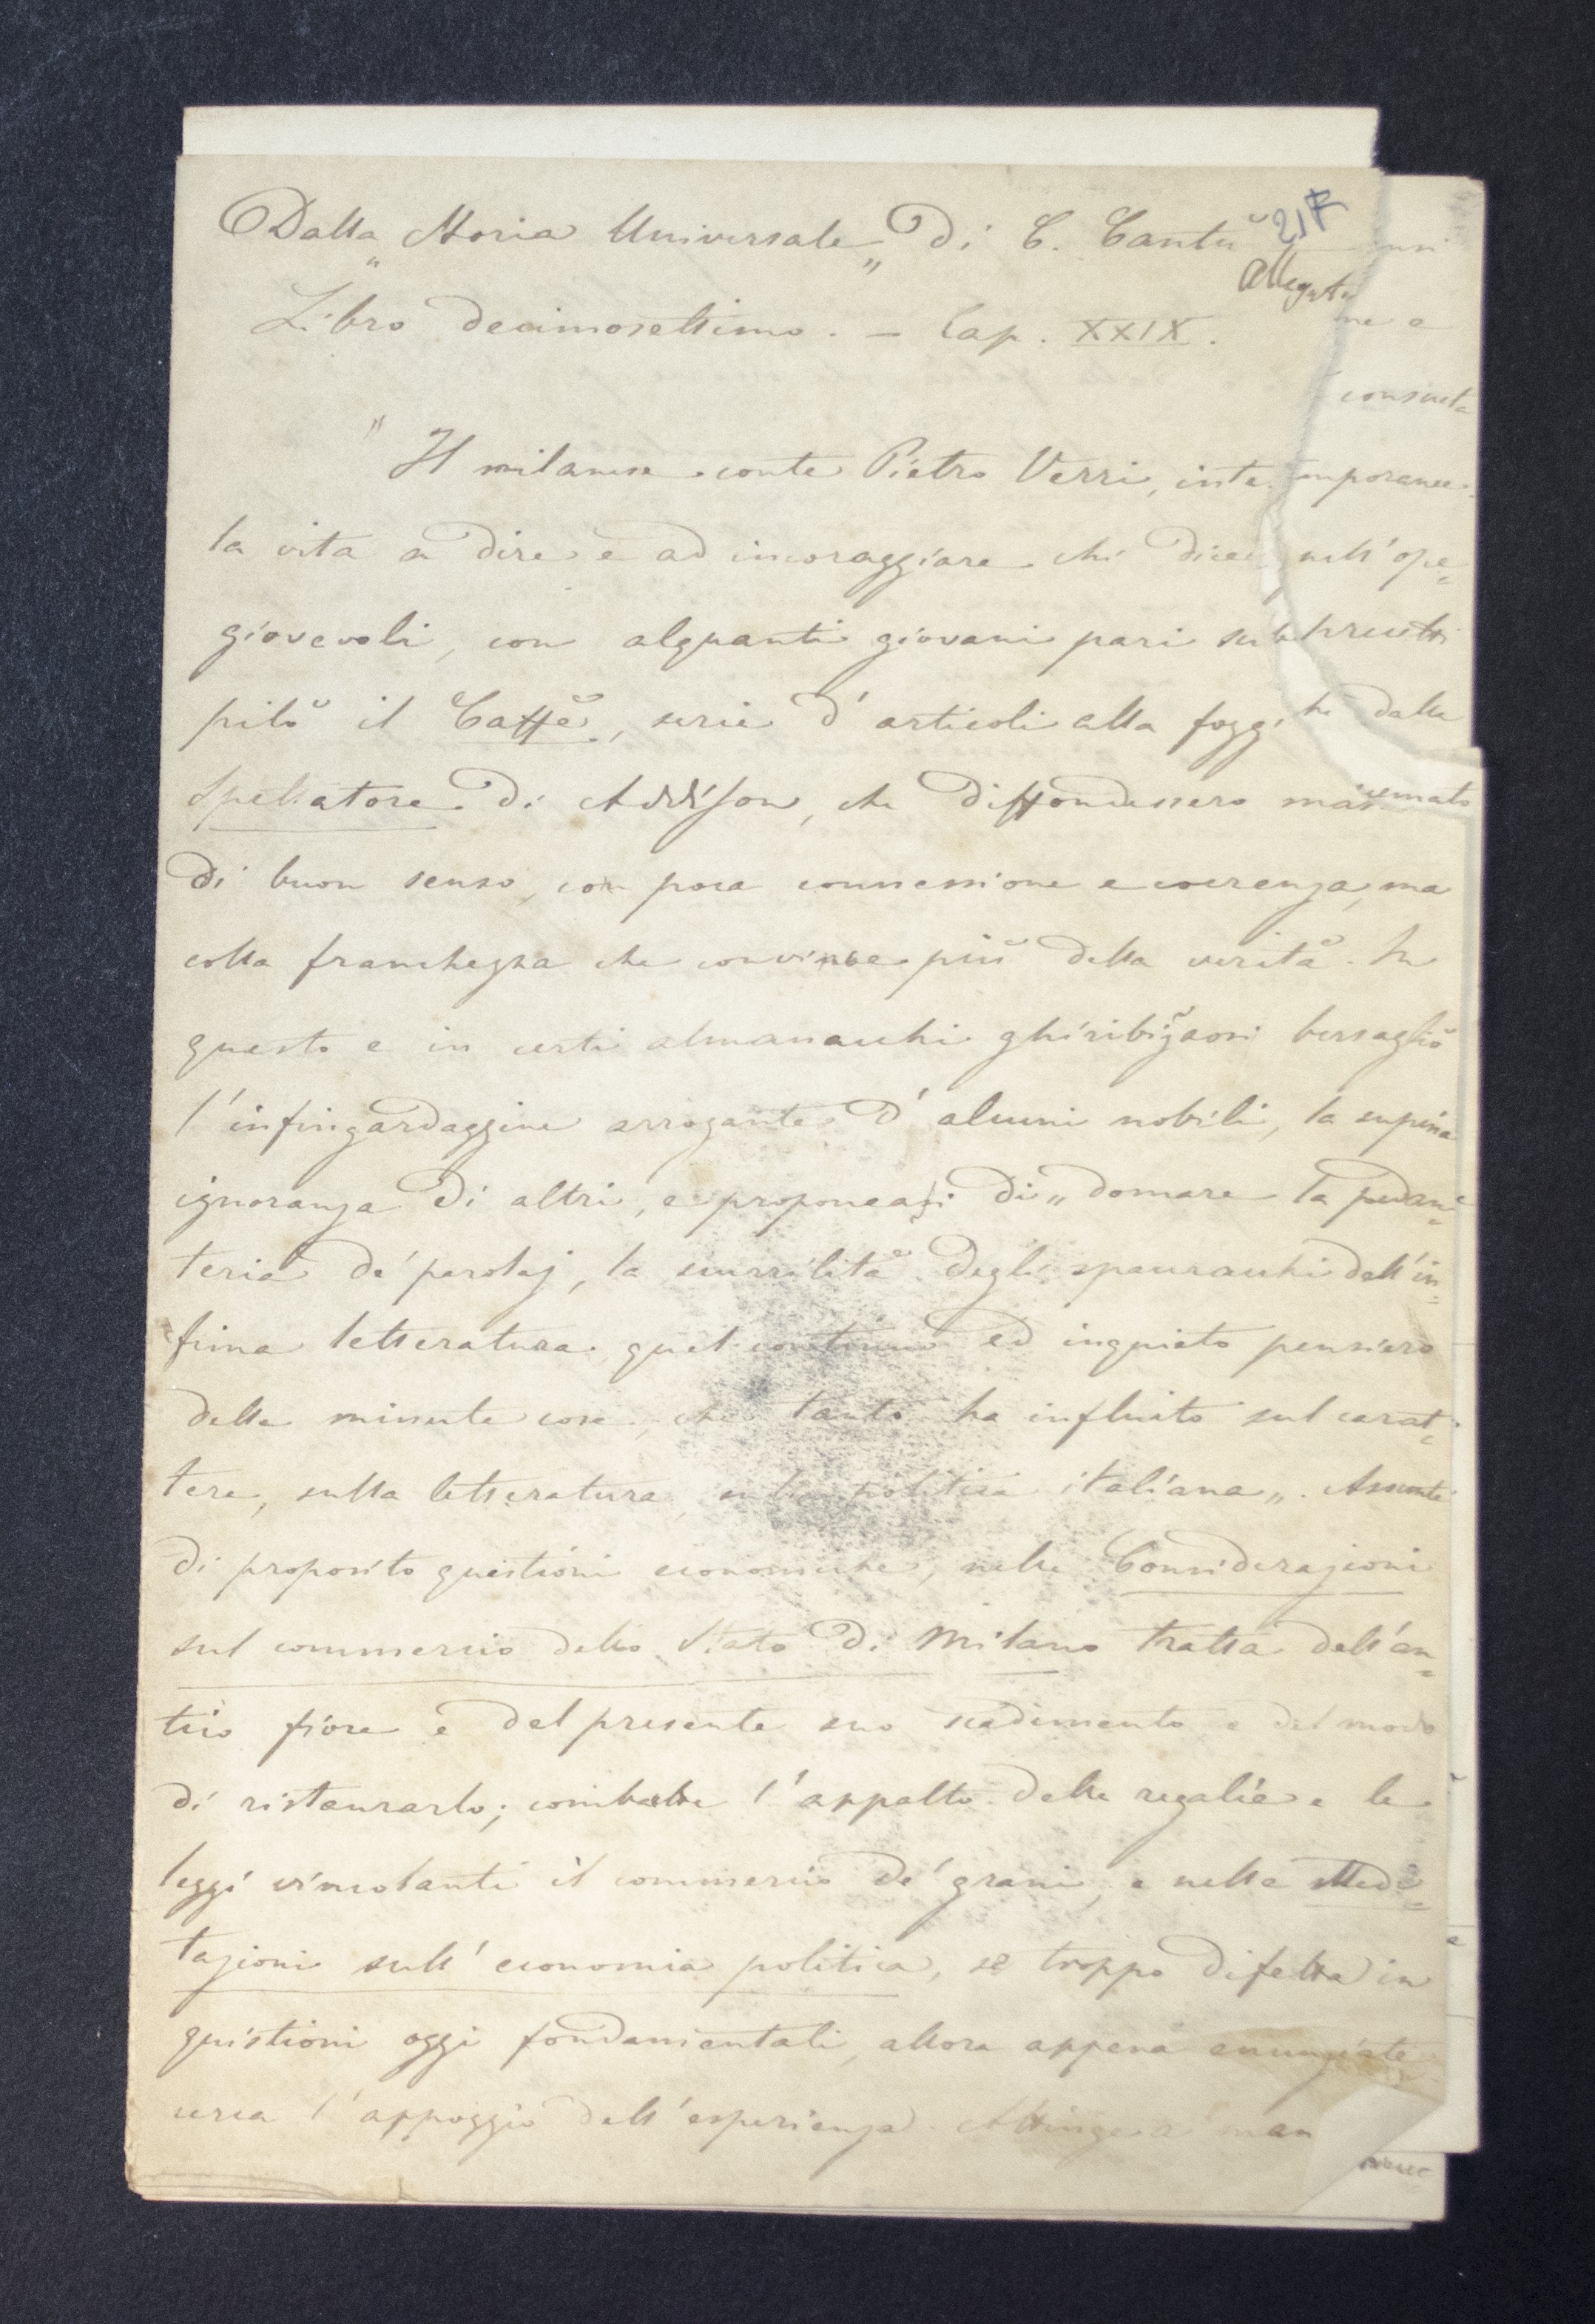 Dalla „Storia Universale„ Di C. Cantù
217
allegato
Libro decimosettimo. – Cap. XXIX.
consueta
" Il milanese conte Pietro Verri, inte
la vita a dire e ad incoraggiare chi dice nell'ope=
giovevoli, con alquanti giovani pari suoi
pilò il Caffè, serie d'articoli alla foggi dalla
Spettatore di Addison, che diffondessero
di buon senso, con poca connessione e coerenza, ma
colla franchezza che convince più della verità. In
questo e in certi almanacchi ghiribizzosi bersagliò
l'infingardaggine arrogante d'alcuni nobili, la supina
ignoranza di altri, e proponeasi di „domare la pedan=
teria de' parolaj, la scurrilità degli spauracchi dell'in=
fima letteratura, quel continuo ed inquieto pensiero
delle minute cose, che tanto ha influito sul carat=
tere, sulla letteratura, sulla politica italiana„. Assunte
di proposito questioni economiche, nelle Considerazioni
sul commercio dello Stato di Milano tratta dell'an=
tico fiore e del presente suo scadimento e del modo
di ristaurarlo; combatte l'appalto delle regalie e le
leggi vincolanti il commercio de' grani, e nelle Medi=
tazioni sull'economia politica, se troppo difetta in
quistioni oggi fondamentali, allora appena enunziate
cerca l'appoggio dell'esperienza. Attinge a man